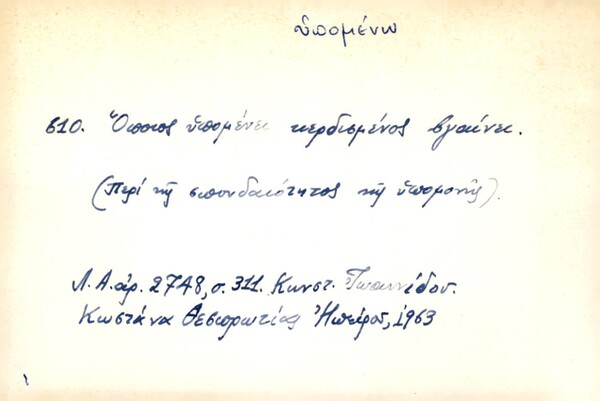 ὑπομένω
610. Ὅποιος ὑπομένει κερδισμένος βγαίνει.
(Περί τῆς σπουδαιότητος τῆς ὑπομονῆς).
Λ.Α. ἀρ. 2748, σ. 311. Κωνστ. Ἰωαννίδου.
Κωστάνα Θεσπρωτίας Ἠπείρου, 1963